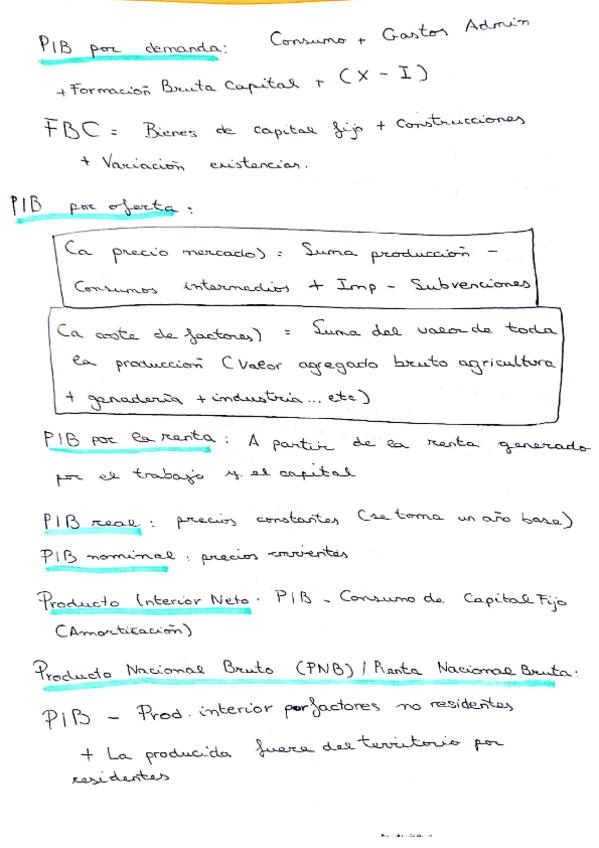 PIB por demanda: Consumo + Gastos Admin
+ Formación Bruta Capital + (X - I)
FBC = Bienes de capital fijo + Construcciones
+ Variación existencias.
PIB por oferta:
(a precio mercado) = Suma producción -
Consumos intermedios + Imp - Subvenciones
(a coste de factores) = Suma del valor de toda
la producción (Valor agregado bruto agricultura
+ ganadería + industria... etc)
PIB por la renta: A partir de la renta generado
por el trabajo y el capital
PIB real: precios constantes (se toma un año base)
PIB nominal: precios corrientes
Producto Interior Neto. PIB - Consumo de Capital Fijo
(Amortización)
Producto Nacional Bruto (PNB) / Renta Nacional Bruta:
PIB - Prod. interior por factores no residentes
+ La producida fuera del territorio por
residentes